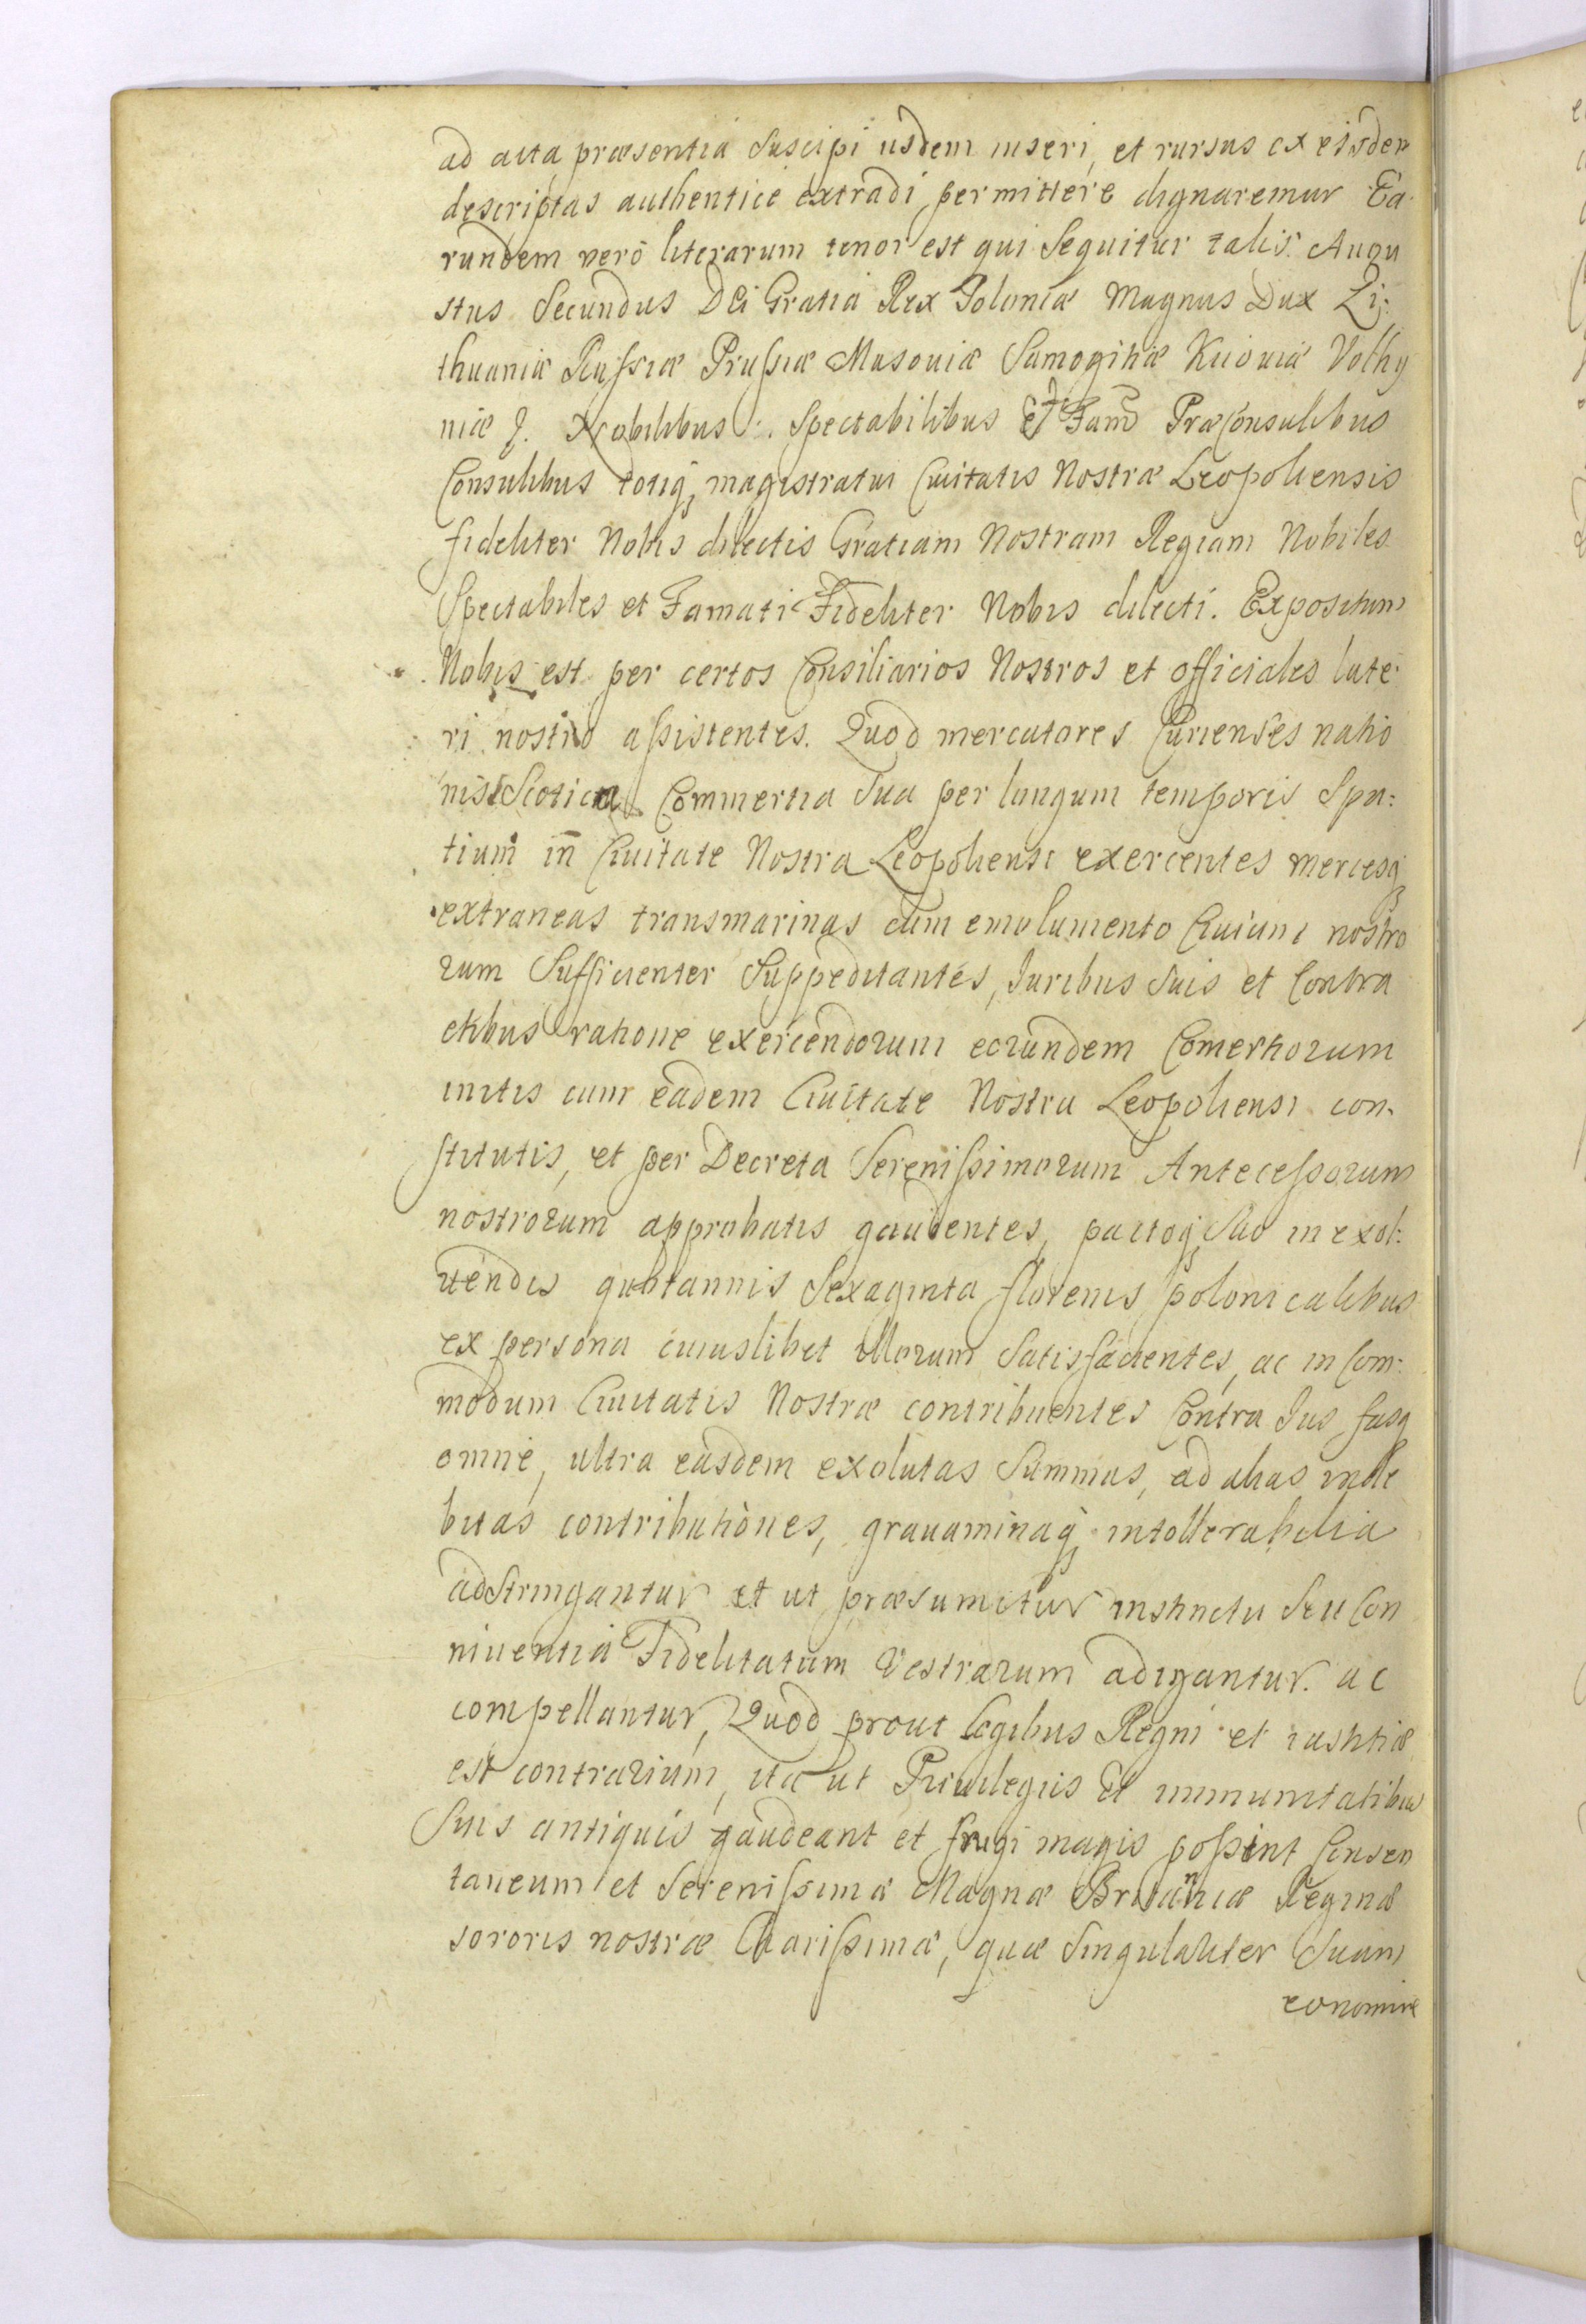 ad acta præsentia Suscipi iisdem inseri, et rursus ex eisdem
descriptas authentice extradi, permittere dignaremur Ea
rundem vero literarum tenor est qui Sequitur talis. Augu
stus Secundus Dei Gratia Rex Poloniæ Magnus Dux Li:
thuaniæ Russiæ Prussiæ Masoviæ Samogitiæ Kiioviæ Volhy
niæ &. Nobilibus. Spectabilibus Et Fam PræConsulibus
Consulibus totiq, magistratui Civitatis Nostræ Leopoliensis
fideliter Nobis dilectis Gratiam Nostram Regiam Nobiles
Spectabiles et Famati Fideliter Nobis dilecti. Expositum
Nobis est per certos Consiliarios Nostros et officiales late:
ri nostro assistentes. Quod mercatores Curienses natio
nis Scoticæ Commertia Sua per longum temporis Spa:
tium in Civitate Nostra Leopoliensi exercentes mercesq,
extraneas transmarinas cum emolumento Civium nostro
rum Sufficienter Suppeditantes, Iuribus Suis et Contra
ctibus ratione exercendorum eorundem Comertiorum
initis cum eadem Civitate Nostra Leopoliensi con:
stitutis, et per Decreta Serenissimorum Antecessorum
nostrorum approbatis gaudentes, pactoq, Suo in exol:
vendis quotannis Sexaginta florenis polonicalibus
ex persona cuiuslibet illorum Satisfacientes, ac in Com:
modum Civitatis Nostræ contribuentes Contra Ius fasq
omne, ultra easdem exolutas Summas, ad alias inde
bitas contributiones, gravaminaq, intollerabilia
adstringantur et ut præsumitur instinctu Seu Con
niventia Fidelitatum Vestrarum adigantur. ac
compellantur, Quod prout legibus Regni et iustitiæ
est contrarium, ita ut Privilegiis Et immunitatibus
Suis antiquis gaudeant et frugi magis possint Consen
taneum et Serenissimæ Magnæ Britaniæ Reginæ
sororis nostræ Charissimæ, quæ Singulariter Suam
eonomine